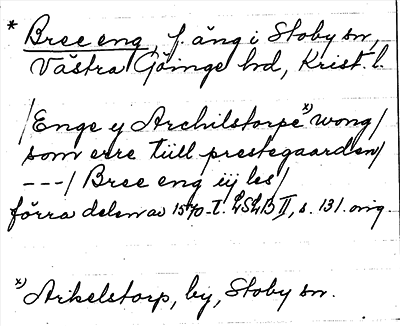 * Bree eng, f. äng i Stoby sn,
Västra Göinge hd, Krist. l.
/Enge y Archilstorpe x) wong/
som ere tiill prestegaarden/
---/ Bree eng iij les/
förra delen av 1570-t. LSLB II, s. 131. orig.
x) Arkelstorp, by, Stoby sn.